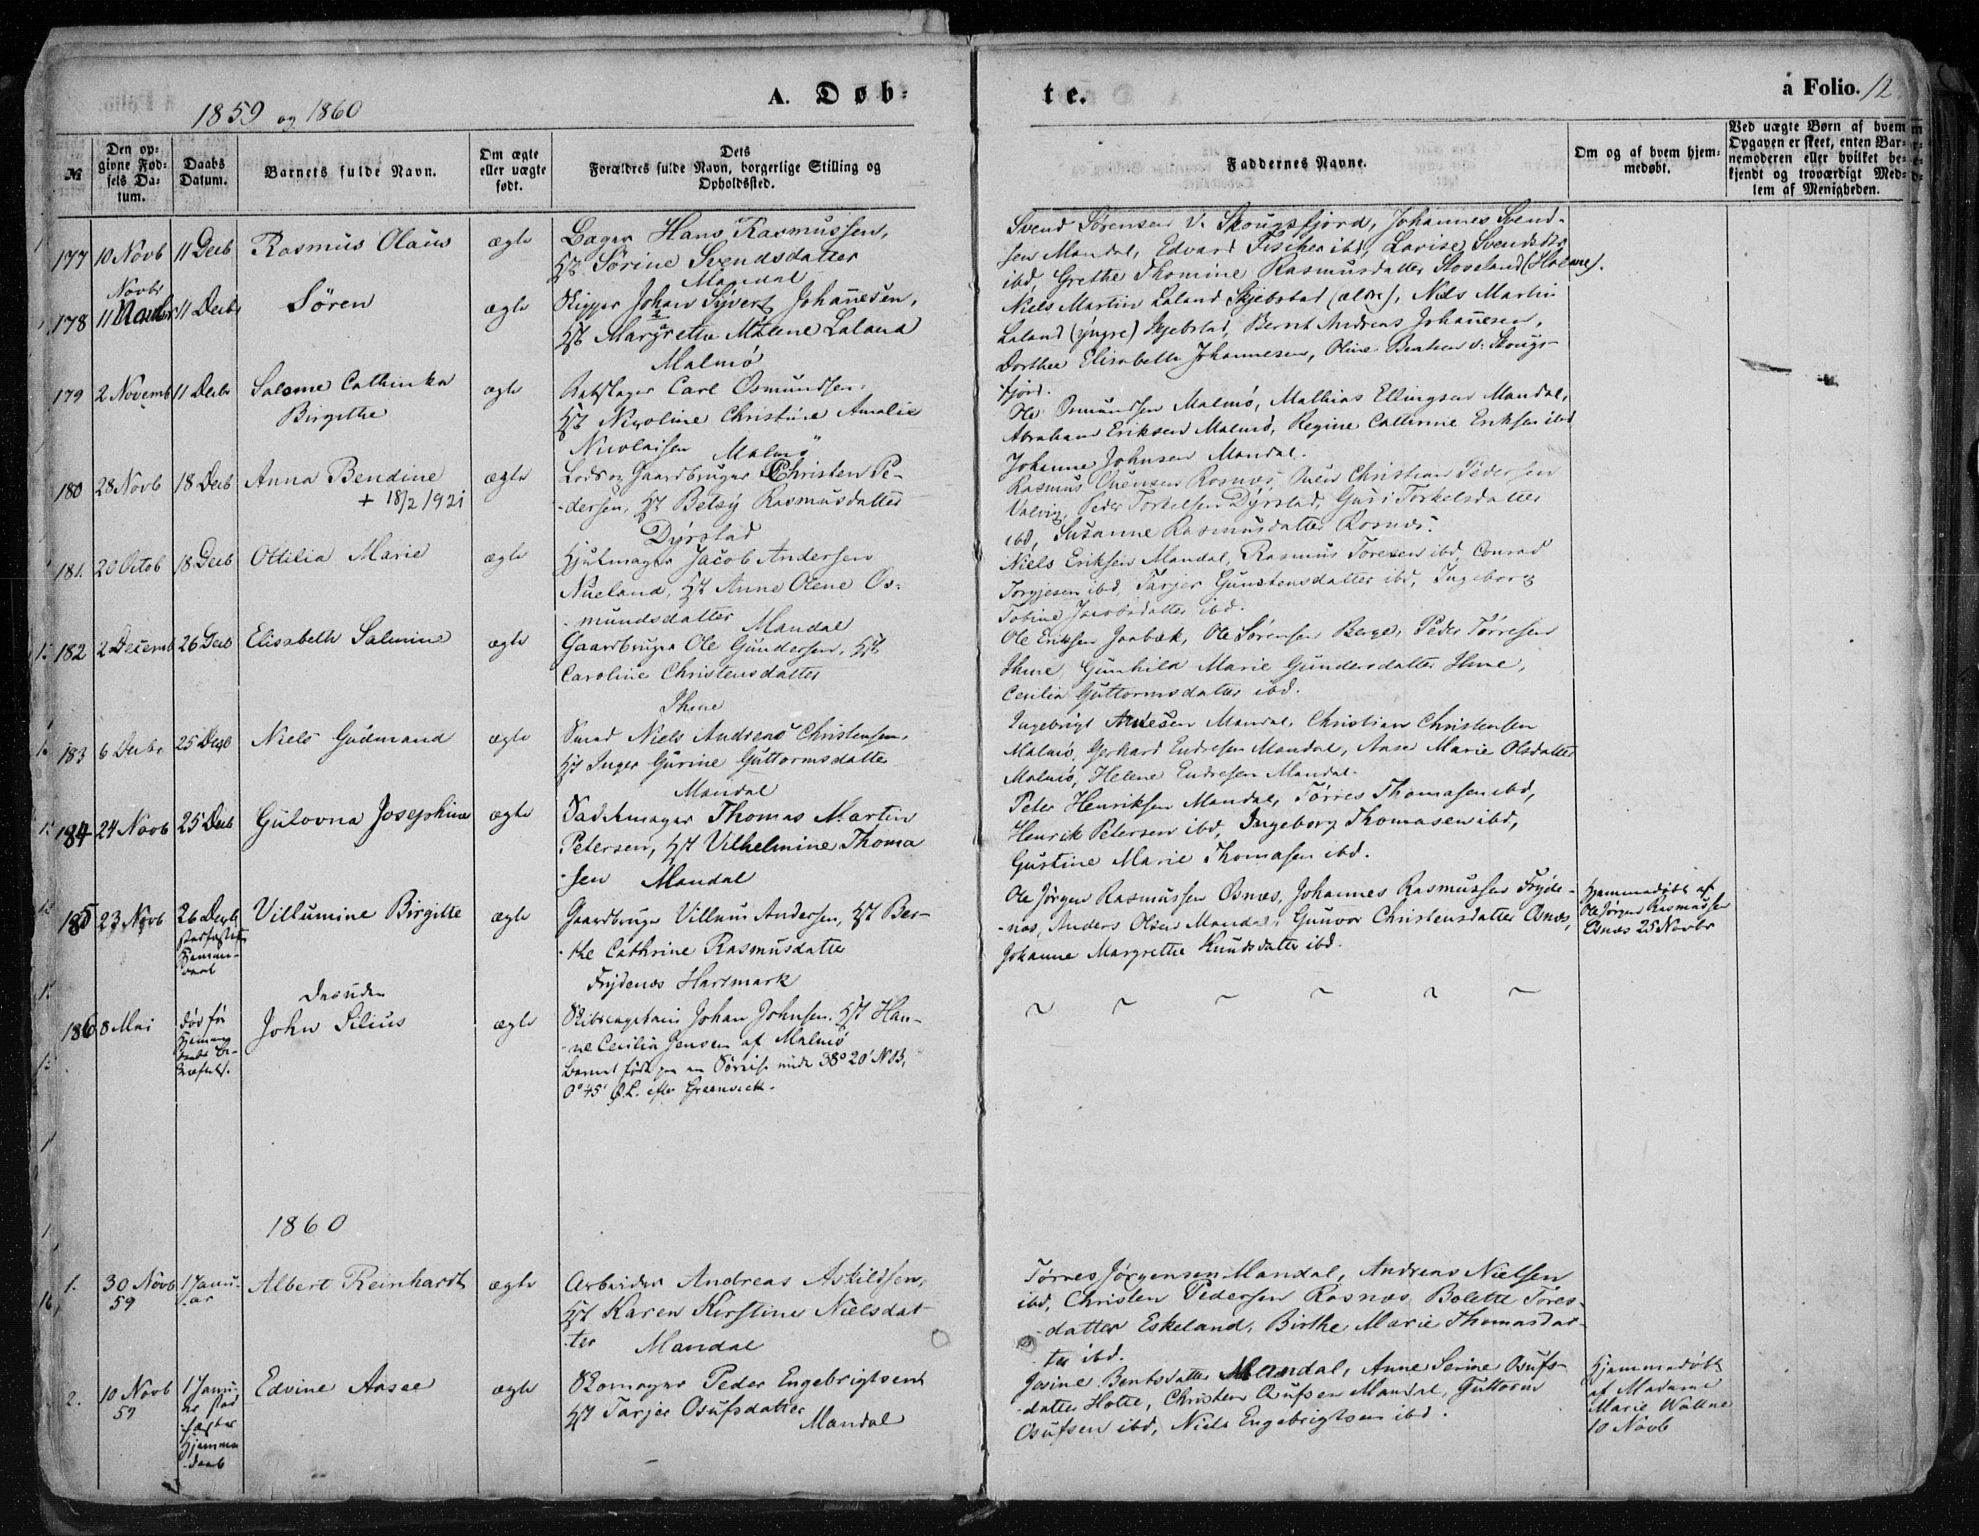 1859 og 1860
A. Døb-
te.
à Folio. 12
№
Den op-
givne Fød-
sels Da-
tum.
Daabs
Datum.
Barnets fulde Navn.
Om ægte
eller uægte
født.
Dets
Forældres fulde Navn, borgerlige Stilling og
Opholdssted.
Faddernes Navne.
Om og af hvem hjem-
medøbt.
Ved uægte Børn af hvem
Opgaven er skeet, enten Bar-
nemoderen eller hvilket be-
kjendt og troværdigt Med-
lem af Menigheden.
177 10 Novb 11 Decb Rasmus Olaus ægte
Bager Hans Rasmussen,
Hst. Sørine Svendsdatter
Mandal
Svend Sørensen v. Skougsfjord, Johannes Svend-
sen Mandal, Edvard Fischer ibd, Lovise Svendsdtr
ibd, Grethe Thomine Rasmusdatter Stoveland (Holme).
178 Novbr
11 11 Decbr Søren ægte
Skipper Johan Syvert Johannesen,
Hst Margrethe Malene Laland
Malmø
Niels Martin Laland Skjebstad (ældre), Niels Martin
Laland (yngre) Skjebstad, Bernt Andreas Johannesen,
Dorthea Elisabeth Johannesen, Oline Bentsen v. Skougs-
fjord.
179 2 Novemb 11 Decbr Salome Cathinka
Birgithe
ægte
Rebslager Carl Osmundsen,
Hst Nicoline Christine Amalie
Nicolaisen Malmø
Ole Osmundsen Malmø, Mathias Ellingsen Mandal,
Abraham Eriksen Malmø, Regine Cathrine Eriksen ibd
Johanne Johnsen Mandal.
180 28 Novb 18 Decb Anna Bendine
+ 18/2 1921
ægte
Lods og Gaardbruger Christen Pe-
dersen, Hst Betsy Rasmusdatter
Dyrstad
Rasmus Ruensen Rosnæs, Ruen Christian Pedersen
Valvig, Peder Torkelsen Dyrstad, Guri Torkelsdatter
ibd, Susanne Rasmusdatter Rosnæs.
181. 20 Octob 18 Decb Ottilia Marie ægte
Hjulmager Jacob Andersen
Nueland, Hst Anne Olene Os-
mundsdatter Mandal
Niels Eriksen Mandal, Rasmus Toresen ibd, Conrad
Torgjesen ibd, Tarjer Gunstensdatter ibd, Ingeborg
Tobine Jacobsdatter ibd.
182 2 Decemb 26 Decb Elisabeth Salmine ægte
Gaardbruger Ole Gundersen, Hst
Caroline Christensdatter
Ihme
Ole Eriksen Jaabæk, Ole Sørensen Berge, Peder Tørresen
Ihme, Gunhild Marie Gundersdatter Ihme,
Cecilia Guttormsdatter ibd.
183 6 Decbr 25 Decb Niels Gudmand ægte
Smed Niels Andreas Christensen,
Hst Inger Gurine Guttormsdatter
Mandal
Ingebrigt Arnesen Mandal, Christian Christensen
Malmø, Gerhard Endresen Mandal, Aase Marie Olsdatter
Malmø, Helene Endresen Mandal.
184 24 Novb 25 Decb Gulovna Josephine ægte
Sadelmager Thomas Martin
Petersen, Hst Vilhelmine Thoma
sen Mandal
Peter Henriksen Mandal, Tørres Thomasen ibd,
Henrik Petersen ibd, Ingeborg Thomasen ibd,
Gustine Marie Thomasen ibd.
185 23 Novb 26 Decb
stadfæstet
Hjemme-
daab
Villumine Birgitte ægte
Gaardbruger Villum Andersen, Hst Ber-
the Cathrine Rasmusdatter
Frydenæs Hartmark
Ole Jørgen Rasmussen Osnæs, Johannes Rasmussen Fryde-
næs, Anders Olsen Mandal, Gunvor Christensdatter Osnæs,
Johanne Margrethe Knudsdatter ibd.
Hjemmedøbt af
Ole Jørgen Rasmussen
Osnæs 25 Novbr
186 8 Mai død før
Hjemme
daabs be-
kræftels.
Desuden
John Silius
ægte
Skibscaptain Johan Johnsen, Hst Han-
ne Cecilia Jensen af Malmø
Barnet født paa en Sørejse under 38° 20' N.B,
0° 45' Ø.L. efter Greenwich.
1860
1. 30 Novb
59
1 Janu-
ar
Albert Reinhardt ægte
Arbeider Andreas Askildsen,
Hst Karen Kirstine Nielsdat-
ter Mandal
Tørres Jørgensen Mandal, Andreas Nielsen
ibd, Christen Pedersen Rosnæs, Bolette Tores-
datter Eskeland, Birthe Marie Thomasdat-
ter ibd.
2. 10 Novb
59
1 Janu-
ar stad
fæstet
Hjemme
daab
Edvine Aasee ægte
Skomager Peder Engebrigtsen
Hst Tarjer Osufsdatter
Mandal
Josine Berntsdatter Mandal, Anne Serine Osufs-
datter Holte, Christen Osufsen Mandal, Guttorm
Osufsen ibd, Niels Engebrigtsen ibd.
Hjemmedøbt
af Madame
Marie Wattne
10 Novb